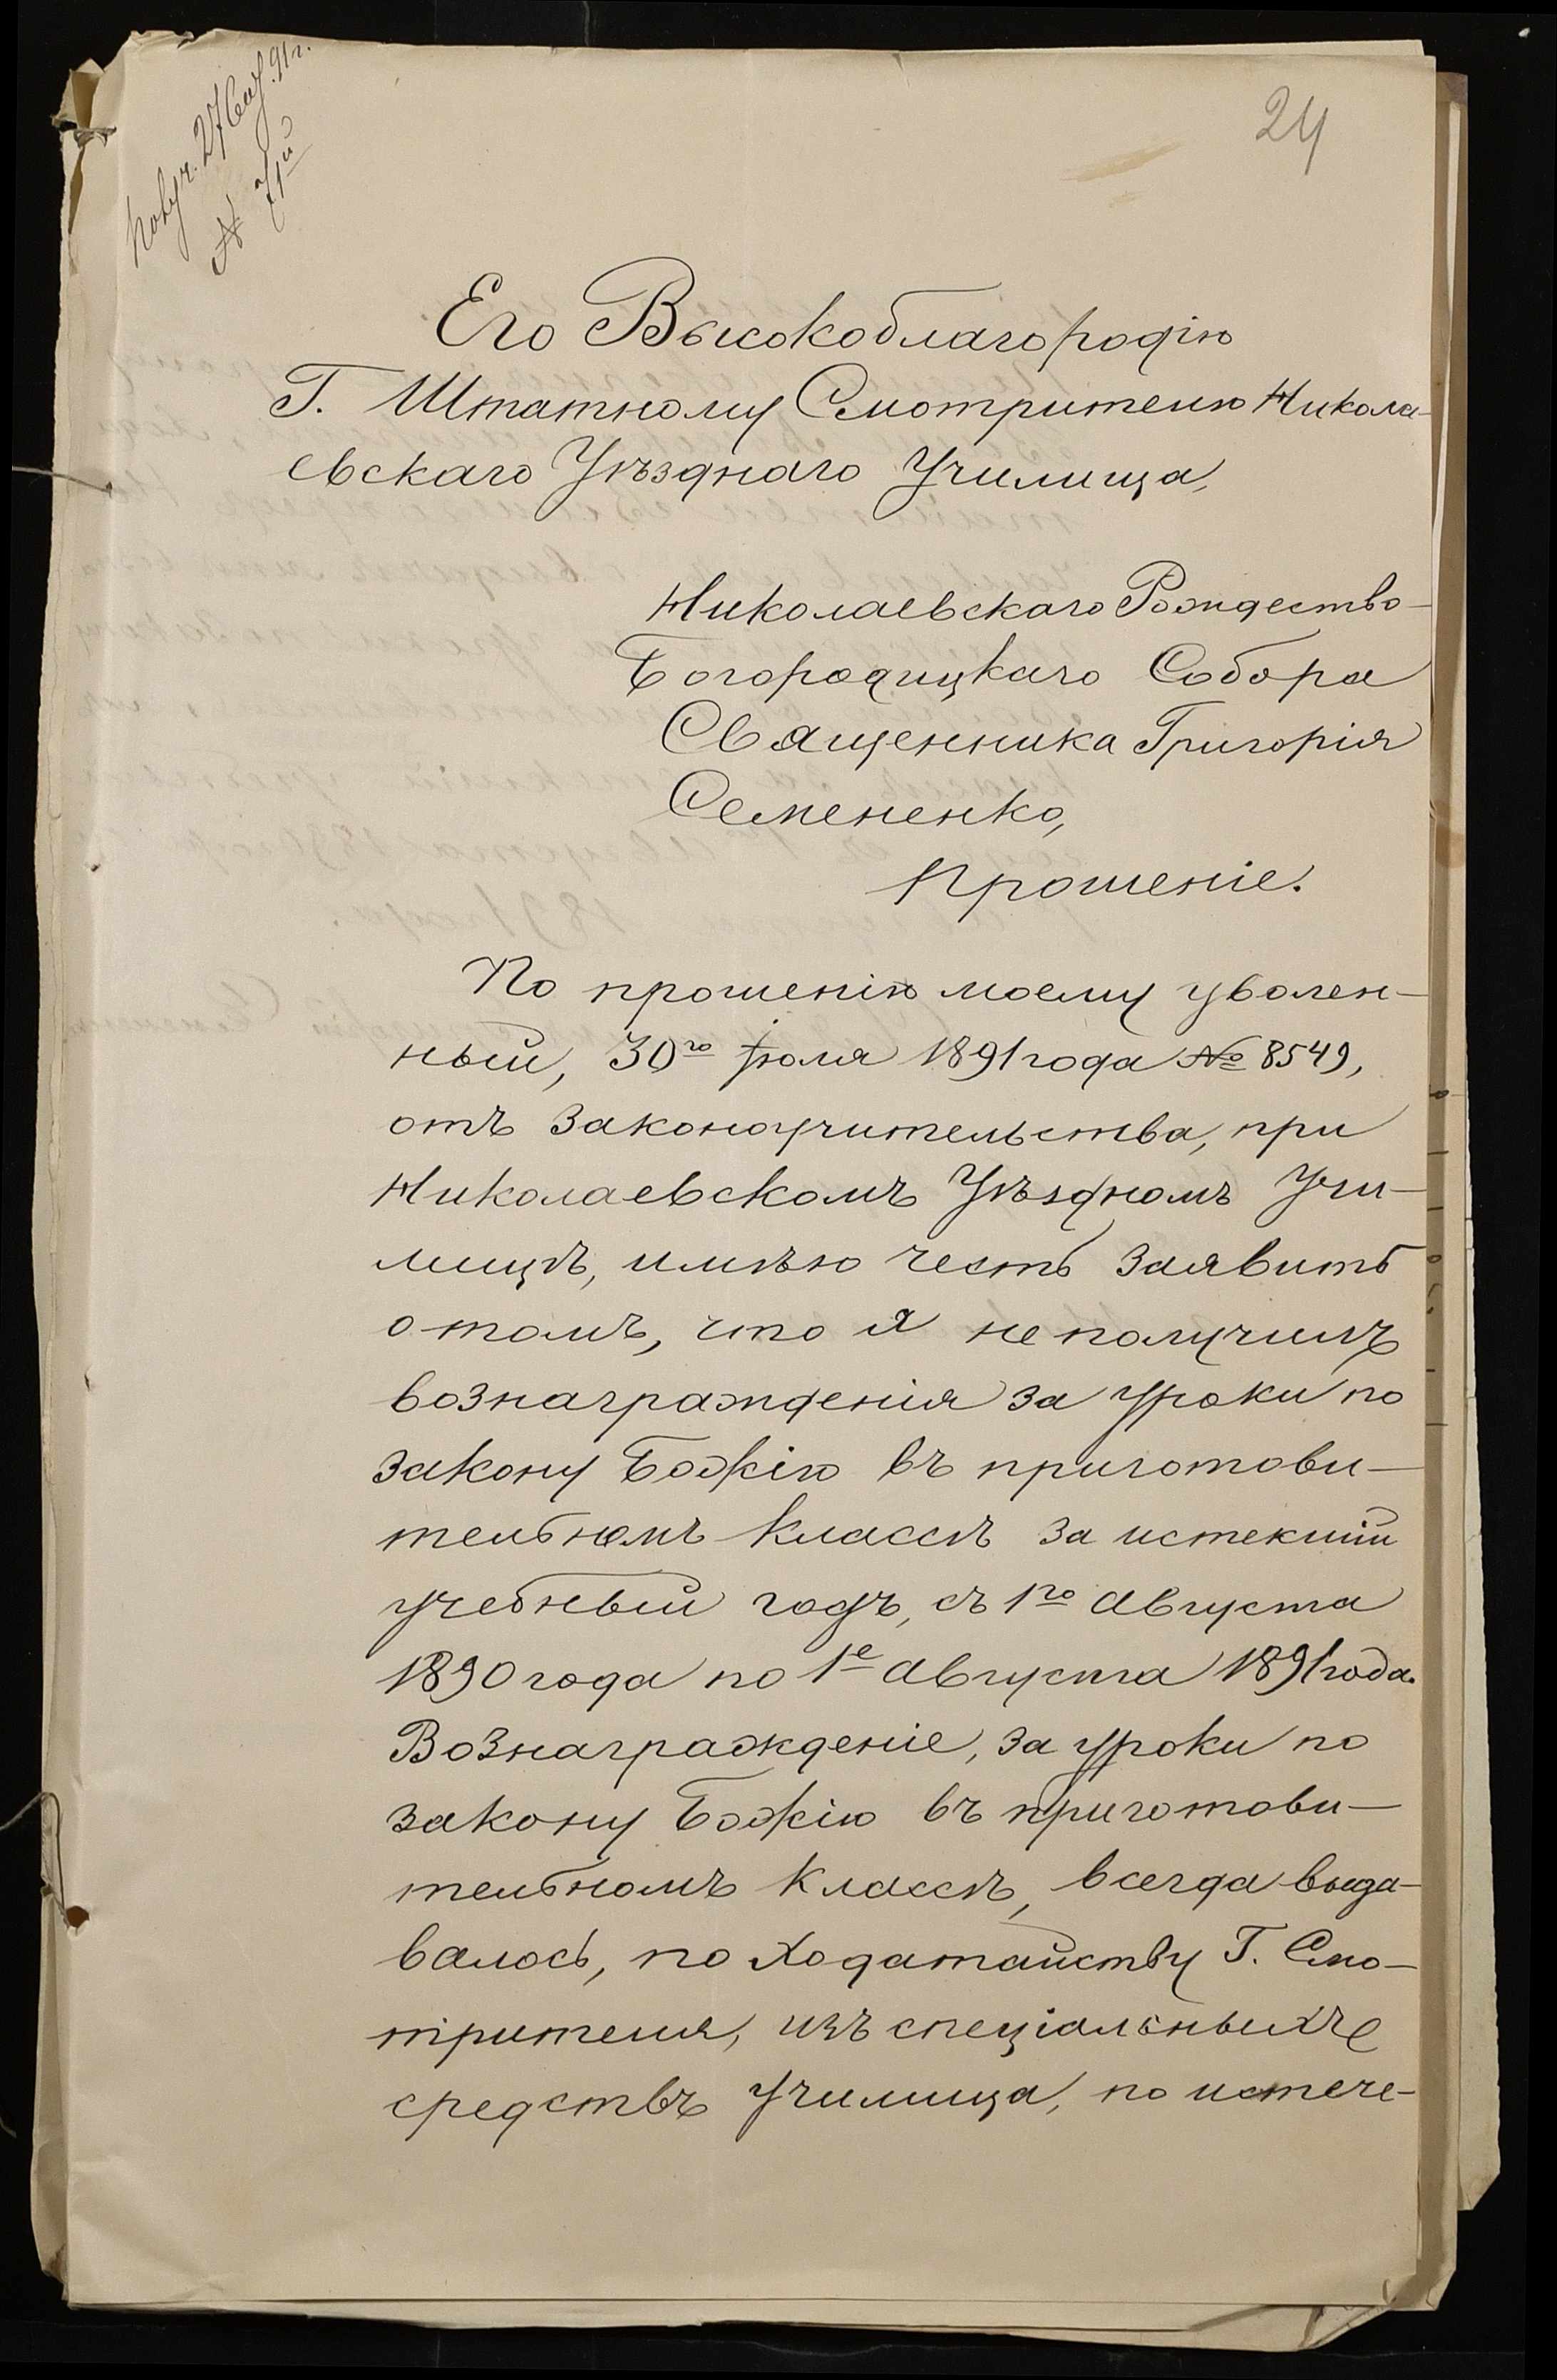 Получ. 27 Сент. 91 г.
№ 71й
24
Его Высокоблагородію
Г. Штатному Смотрителю Никола-
евскаго Уѣзднаго Училища,
Николаевскаго Рождество-
Богородицкаго Собора
Священника Григорія
Семененко,
Прошеніе.
По прошенію моему уволен-
ный, 30го Іюля 1891 года № 8549,
отъ законоучительства, при
Николаевскомъ Уѣздномъ Учи-
лищѣ, имѣю честь заявить
о томъ, что я не получилъ
вознагражденія за уроки по
закону Божію въ приготови-
тельномъ классѣ за истекшій
учебный годъ, съ 1го Августа
1890 года по 1е Августа 1891 года.
Вознагражденіе, за уроки по
закону Божію въ приготови-
тельномъ классѣ, всегда выда-
валось, по ходатайству Г. Смо-
трителя, изъ спеціальныхъ
средствъ Училища, по истече-